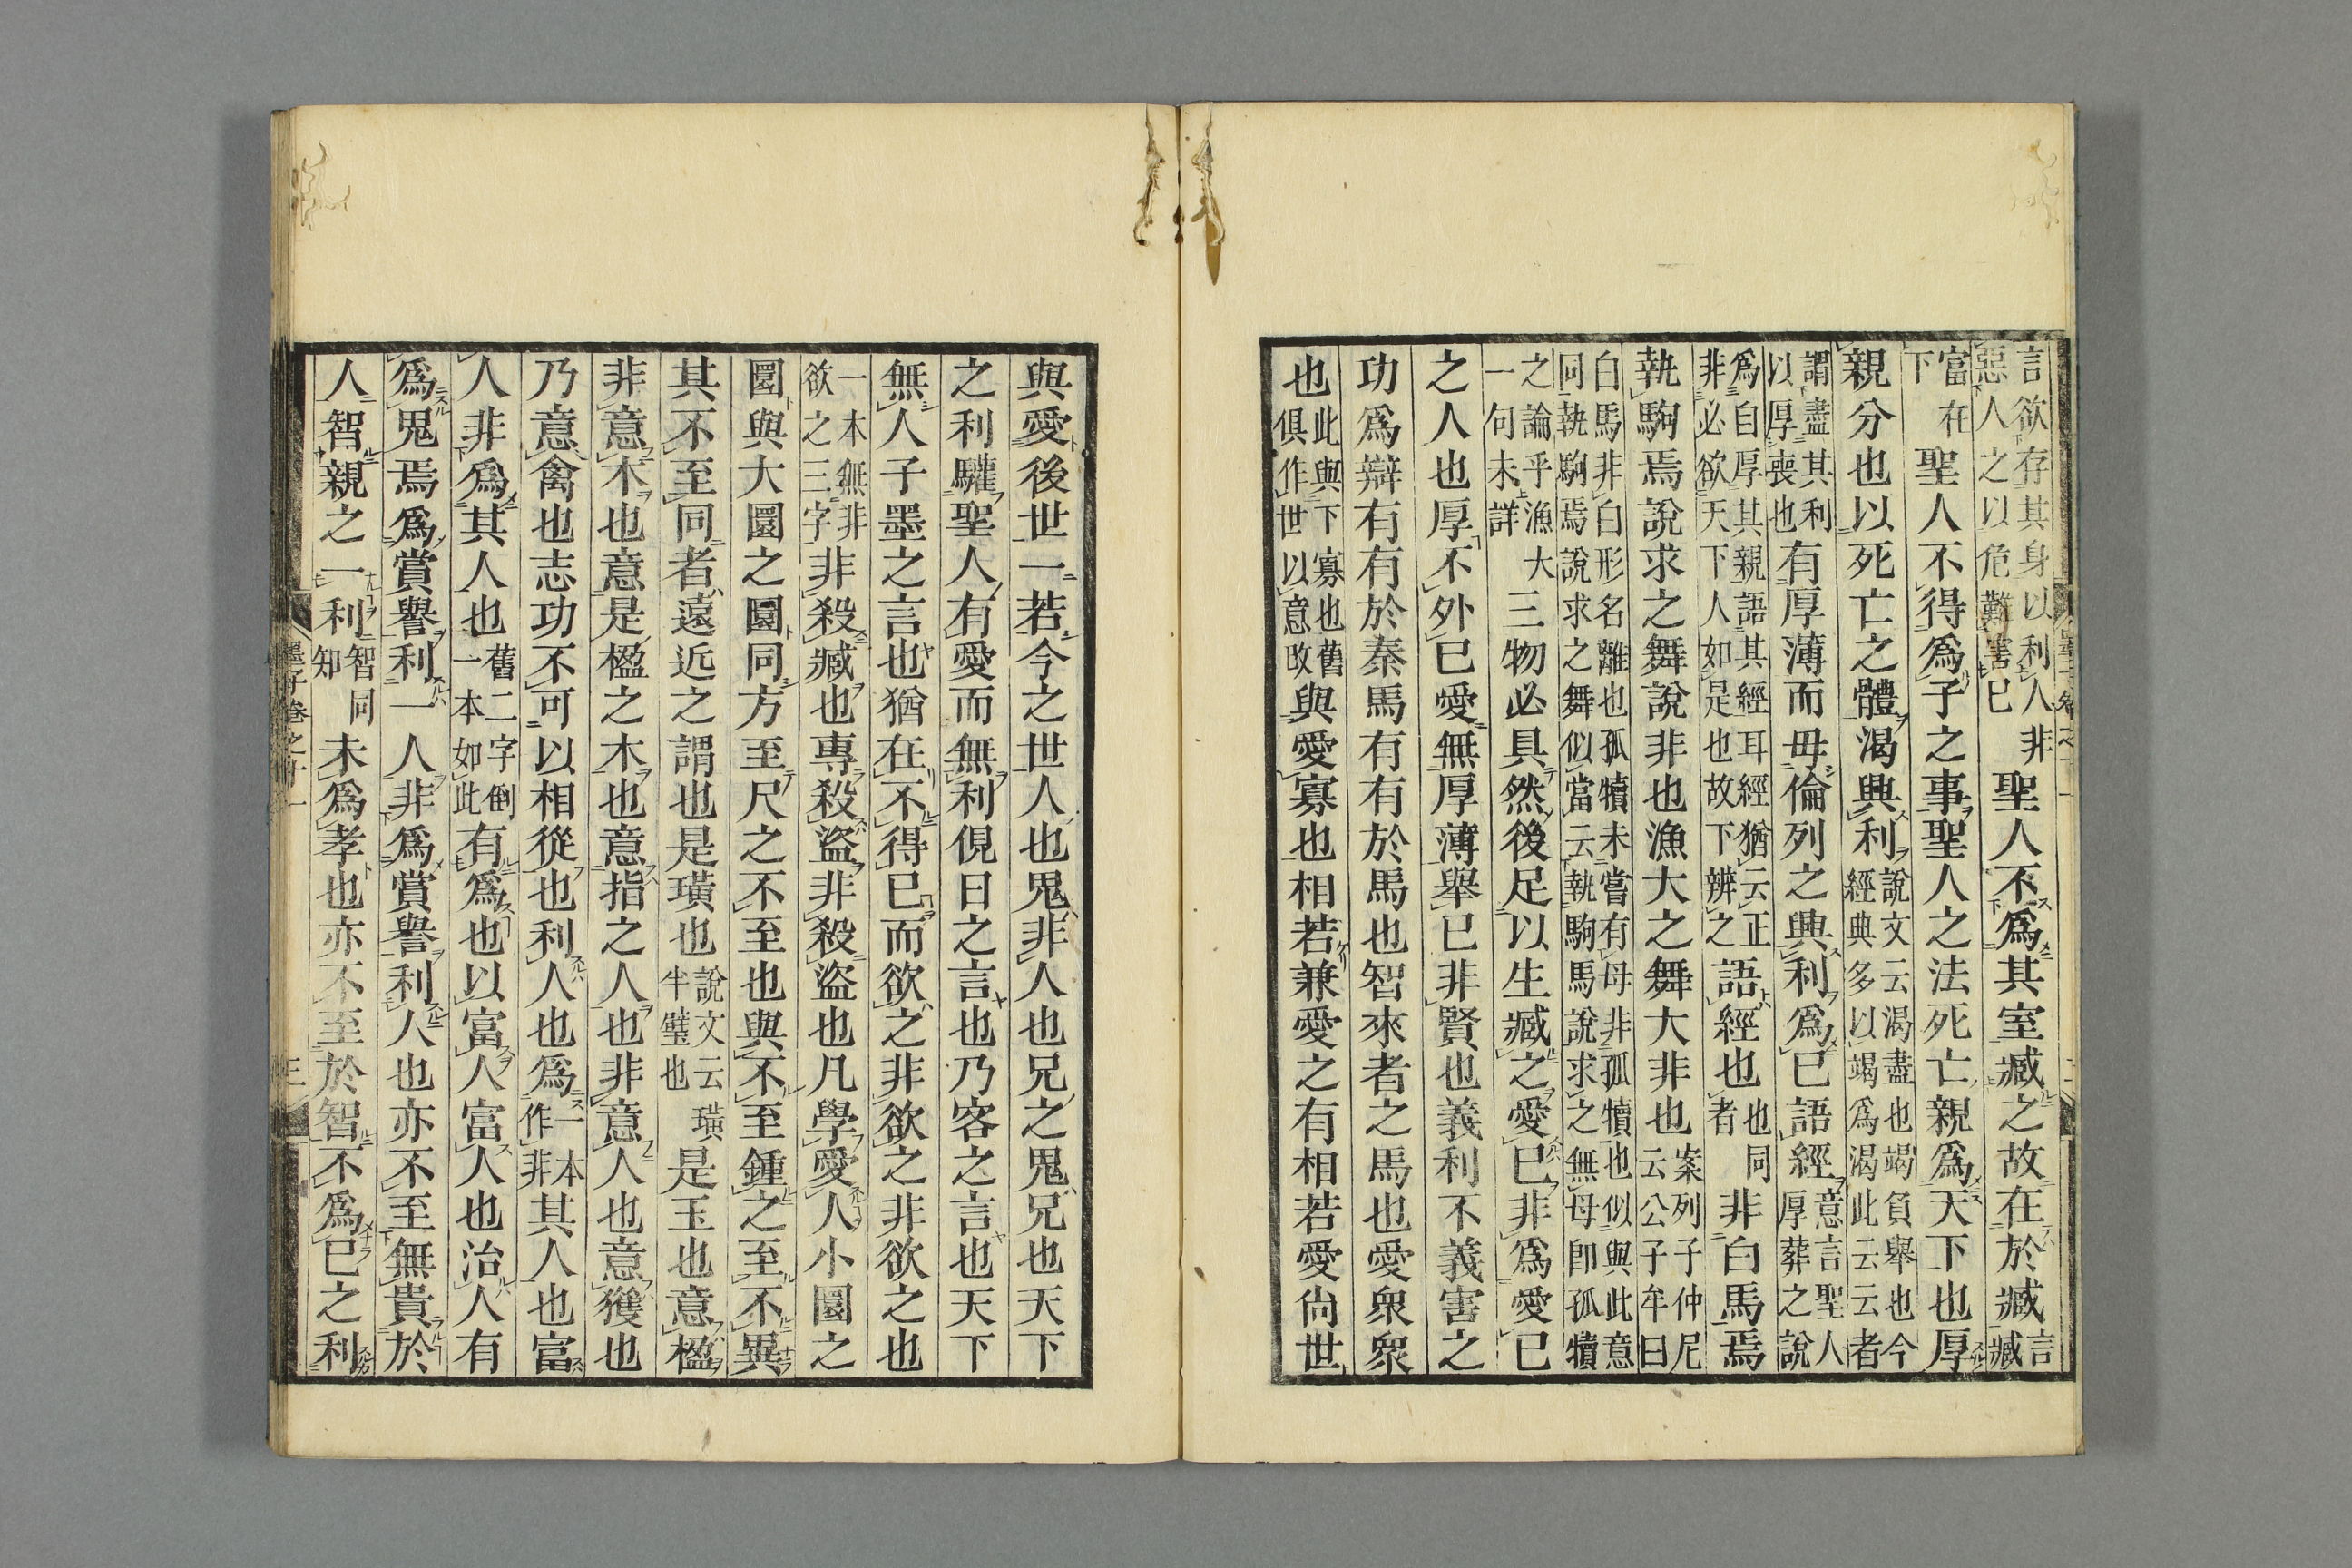 言欲存其身以利人非惡人之以危難害己聖人不爲其室臧之故在於臧言臧
富在下聖人不得爲子之事聖人之法死亡親爲天下也厚
親分也以死亡之體渴興利說文云渴盡也竭負舉也今經典多以竭爲渴此云云者
謂盡其利以厚喪也有厚薄而毋倫列之興利爲已語經意言聖人厚葬之說
爲自厚其親語其經耳經猶云正非必欲天下人如是也故下辨之語經也也同者非白馬焉
執駒焉說求之舞說非也漁大之舞大非也案列子仲尼云公子牟曰
白馬非白形名離也孤犢未嘗有母非孤犢也似與此意同執駒焉說求之舞似當云執駒馬說求之無母卽孤犢
之論乎漁大一句未詳三物必具然後足以生臧之愛已非爲愛已
之人也厚不外已愛無厚薄舉已非賢也義利不義害之
功爲辯有有於秦馬有有於馬也智來者之馬也愛衆衆
也此與下寡也舊俱作世以意改與愛寡也相若兼愛之有相若愛尙世
與愛後世一若今之世人也鬼非人也兄之鬼兄也天下
之利驩聖人有愛而無利俔日之言也乃客之言也天下
無人子墨之言也猶在不得已而欲之非欲之非欲之也
一本無非欲之三字非殺臧也專殺盜非殺盜也凡學愛人小圜之
圜與大圜之圜同方至尺之不至也與不至鍾之至不異
其不至同者遠近之謂也是璜也說文云璜半璧也是玉也意楹
非意木也意是楹之木也意指之人也非意人也意獲也
乃意禽也志功不可以相從也利人也爲一本作非其人也富
人非爲其人也舊二字倒一本如此有爲也以富人富人也治人有
爲鬼焉爲賞譽利一人非爲賞譽利人也亦不至無貴於
人智親之一利智同知未爲孝也亦不至於智不爲已之利
墨子卷之十一
三